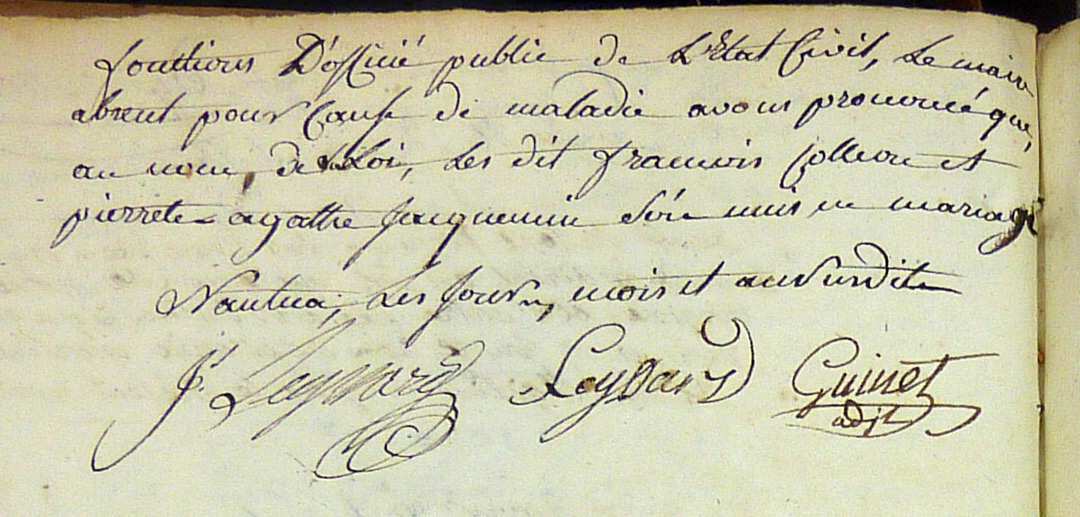 fonctions D'officié public de L'Etat Civil, Le maire
absent pour Cause de maladie avons prononcé que,
au nom, de la Loi, Les dit francois et
pierrete agathe Jacquemin Són unis en mariage
Nantua, Les Jour, mois et an susdite
Jh. Leysard Leydard Guinet
adjt